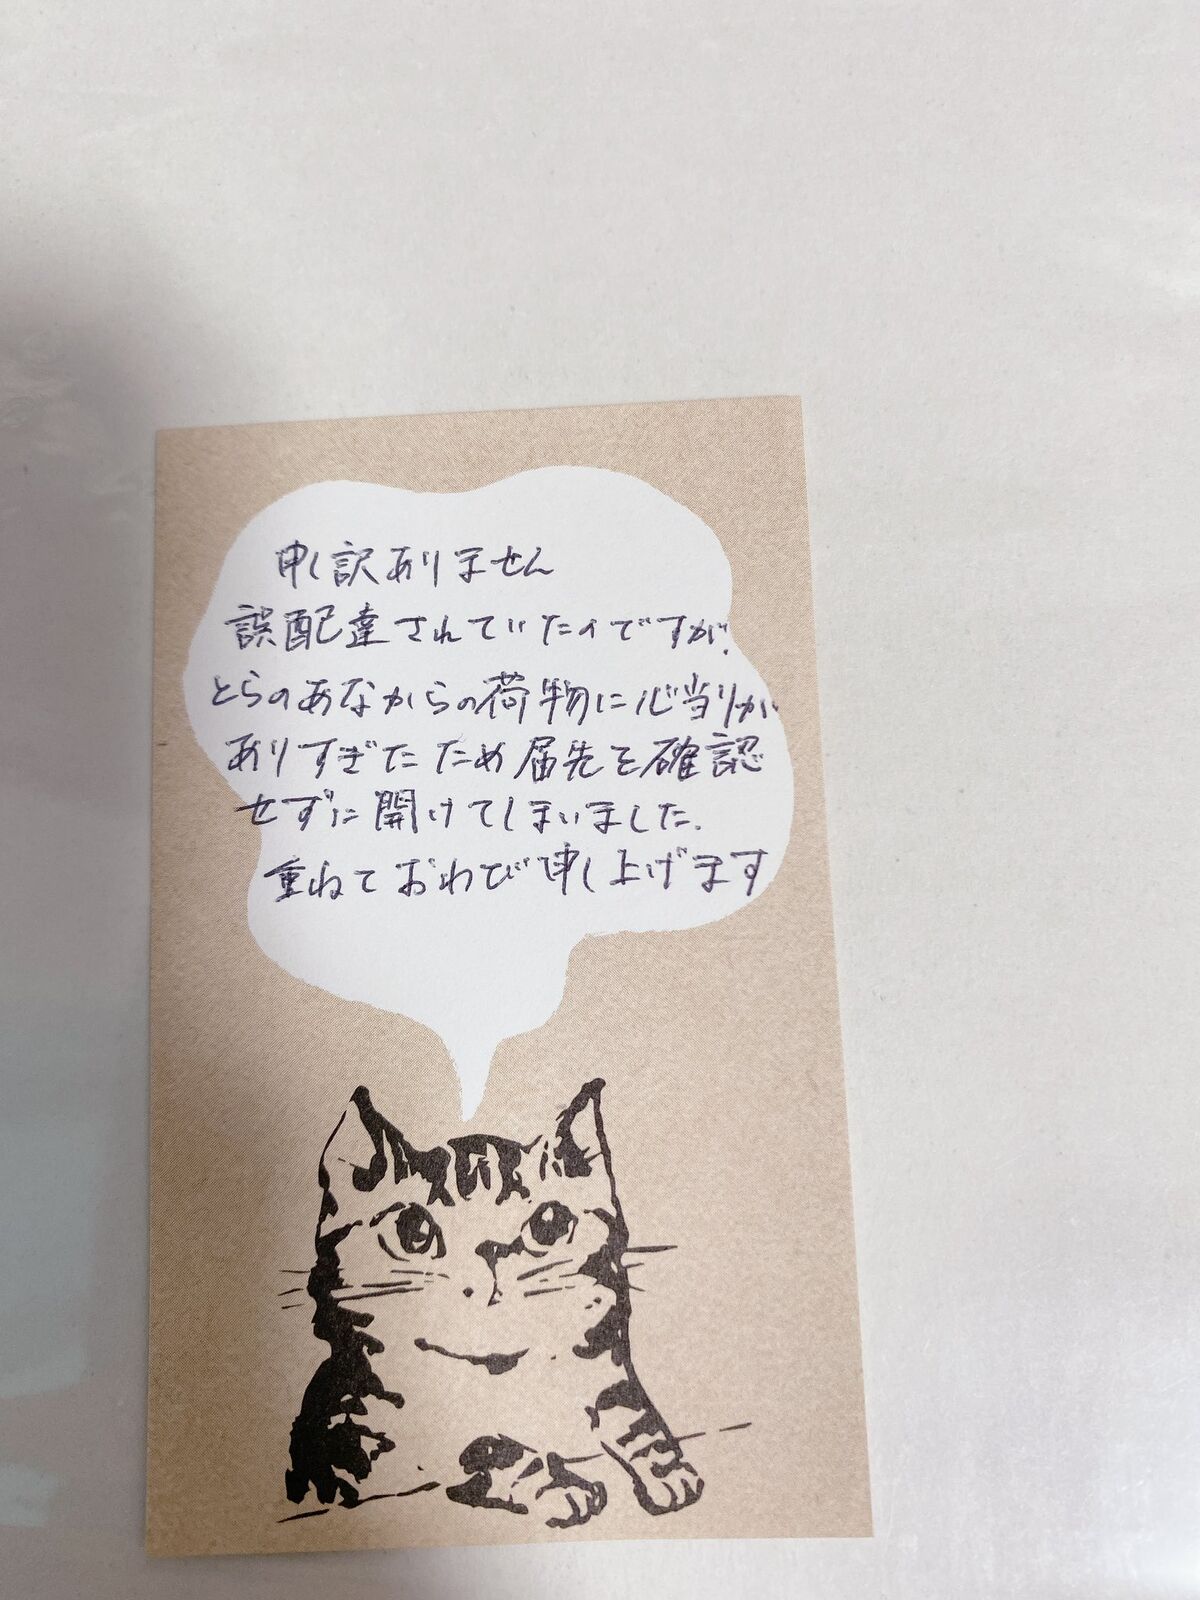 申し訳ありません
誤配達されていたのですが、
とらのあなからの荷物に心当りが
ありすぎたため届先を確認
せずに開けてしまいました。
重ねておわび申し上げます